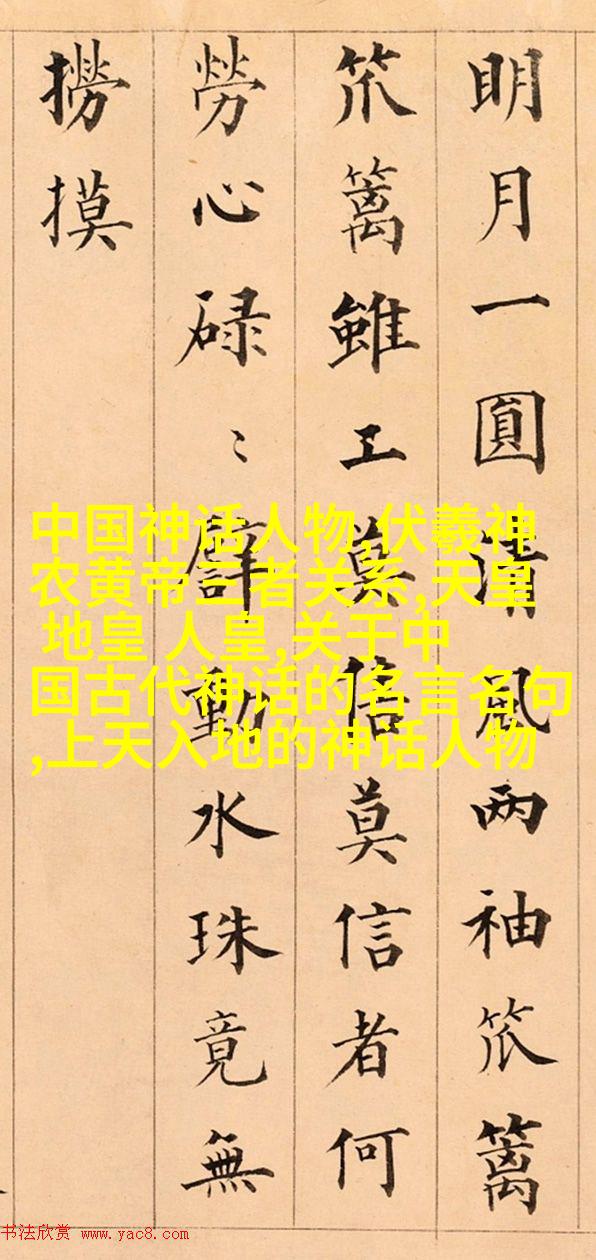 明月一圓清風两袖笊篱
笊篱雖工莫信莫信者何
勞心碌〻動水珠竟無
撈摸
中国神话人物,伏羲神
农黄帝三者关系,天皇
地皇 人皇,关于中
国古代神话的名言名句
,上天入地的神话人物
书法欣赏 www.yac8.com